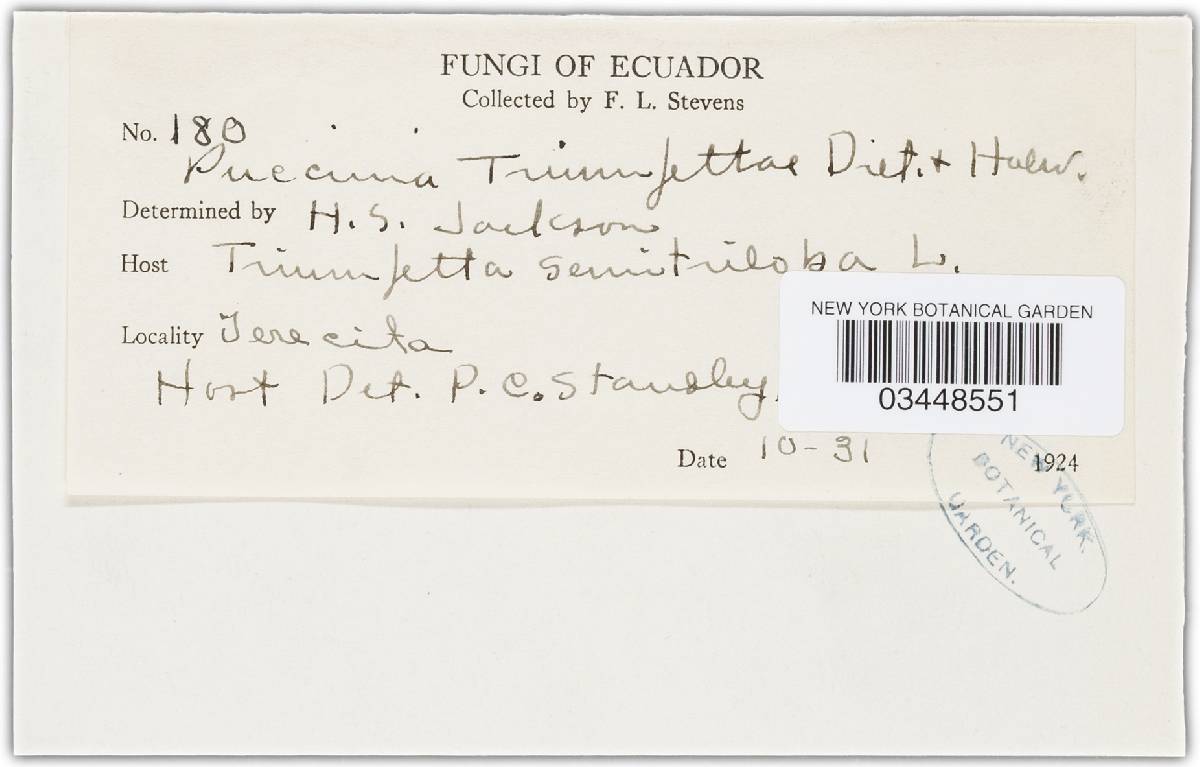 FUNGI OF ECUADOR
Collected by F. L. Stevens
No. 180
Puccinia Triumfettae Diet. + Holw.
Determined by H. S. Jackson
Host Triumfetta semitriloba L.
Locality Terecita
Host Det. P. C. Standley.
Date 10-31 1924
NEW YORK BOTANICAL GARDEN
03448551
NEW YORK
BOTANICAL
GARDEN.